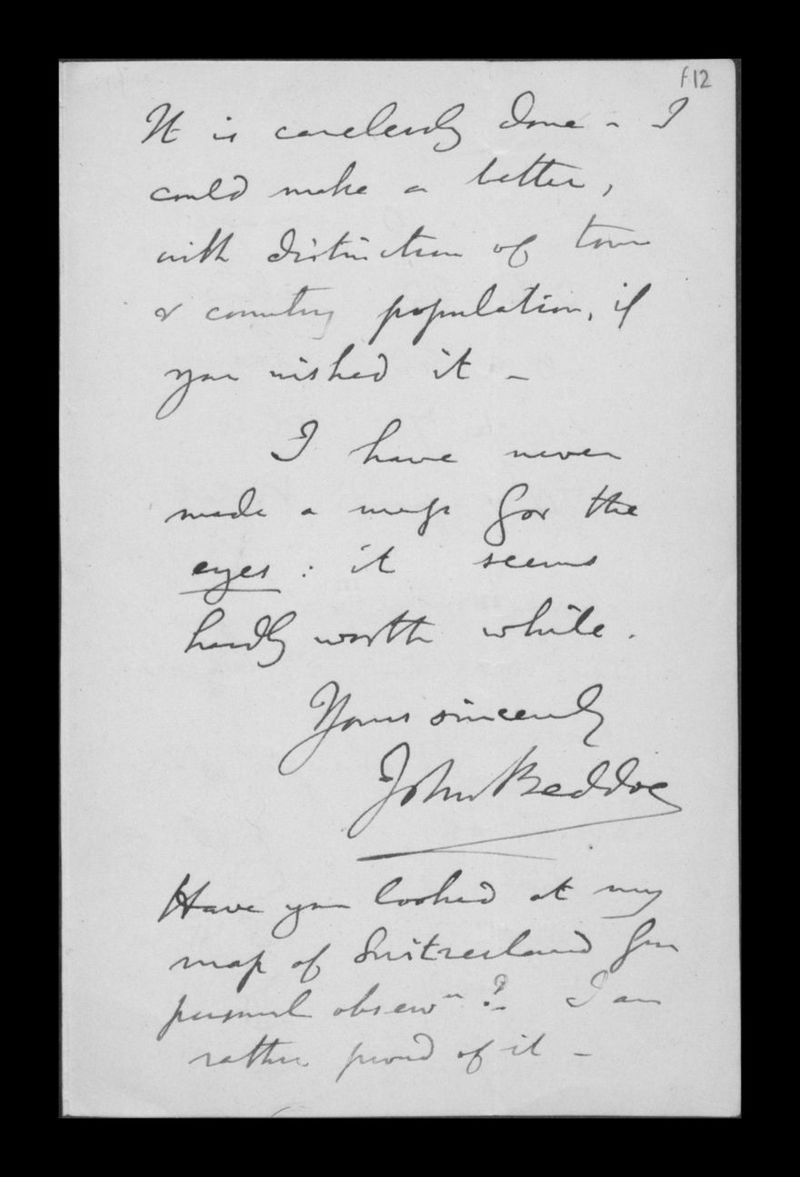 f12
It is carelessly done - I
could make a better,
with distinction of town
& country population, if
you wished it -
I have never
made a map for the
eyes : it seems
hardly worth while.
Yours sincerely
John Beddoe
Have you looked at my
map of Switzerland from
personal observn ? I am
rather proud of it -